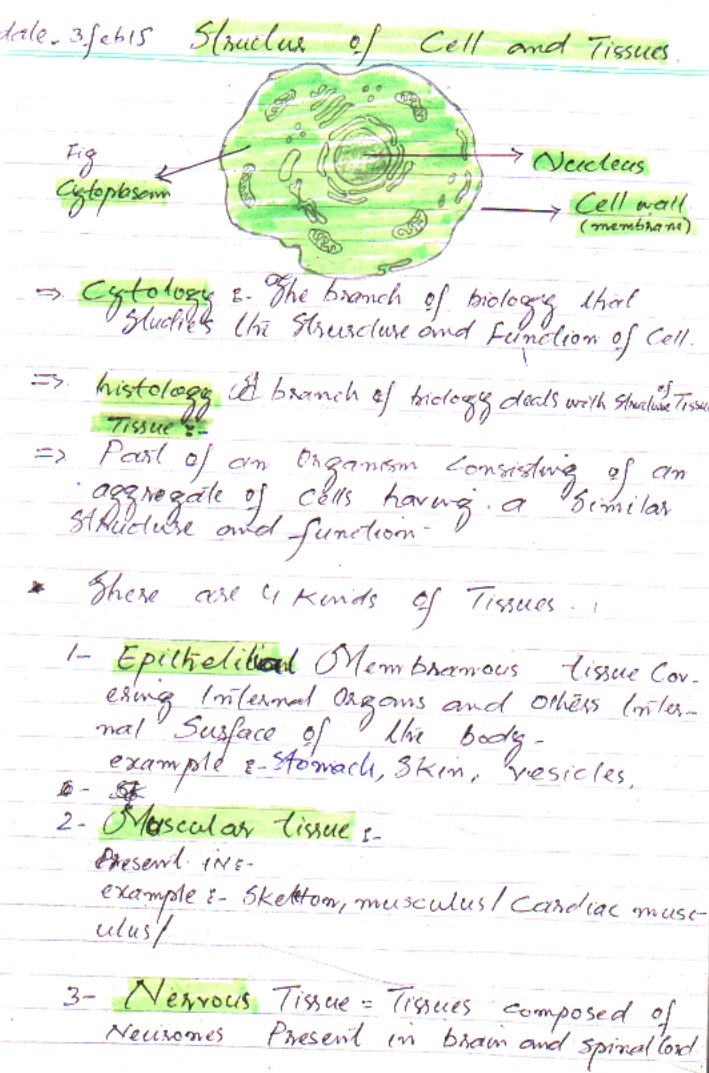 date. 3.feb15 Structur of Cell and Tissues
Fig
Cytoplasam
Nucleus
Cell wall
(membrane)
⇒ Cytology :- The branch of biology that
studies the Structure and Function of Cell.
⇒ histology A branch of biology deals with structure of Tissue
Tissue :-
⇒ Part of an Organism Consisting of an
aggregate of cells having a Similar
structure and function
* There are 4 Kinds of Tissues.
1- Epithelial Membranous tissue Cov-
ering Internal Organs and others Inter-
nal Surface of the body-
example :- Stomach, Skin, vesicles,
6-
2- Muscular tissue :-
Present in :-
example :- Skeleton, musculus/ Cardiac musc-
ulus/
3- Nervous Tissue = Tissues composed of
Neurones Present in brain and spinal Cord